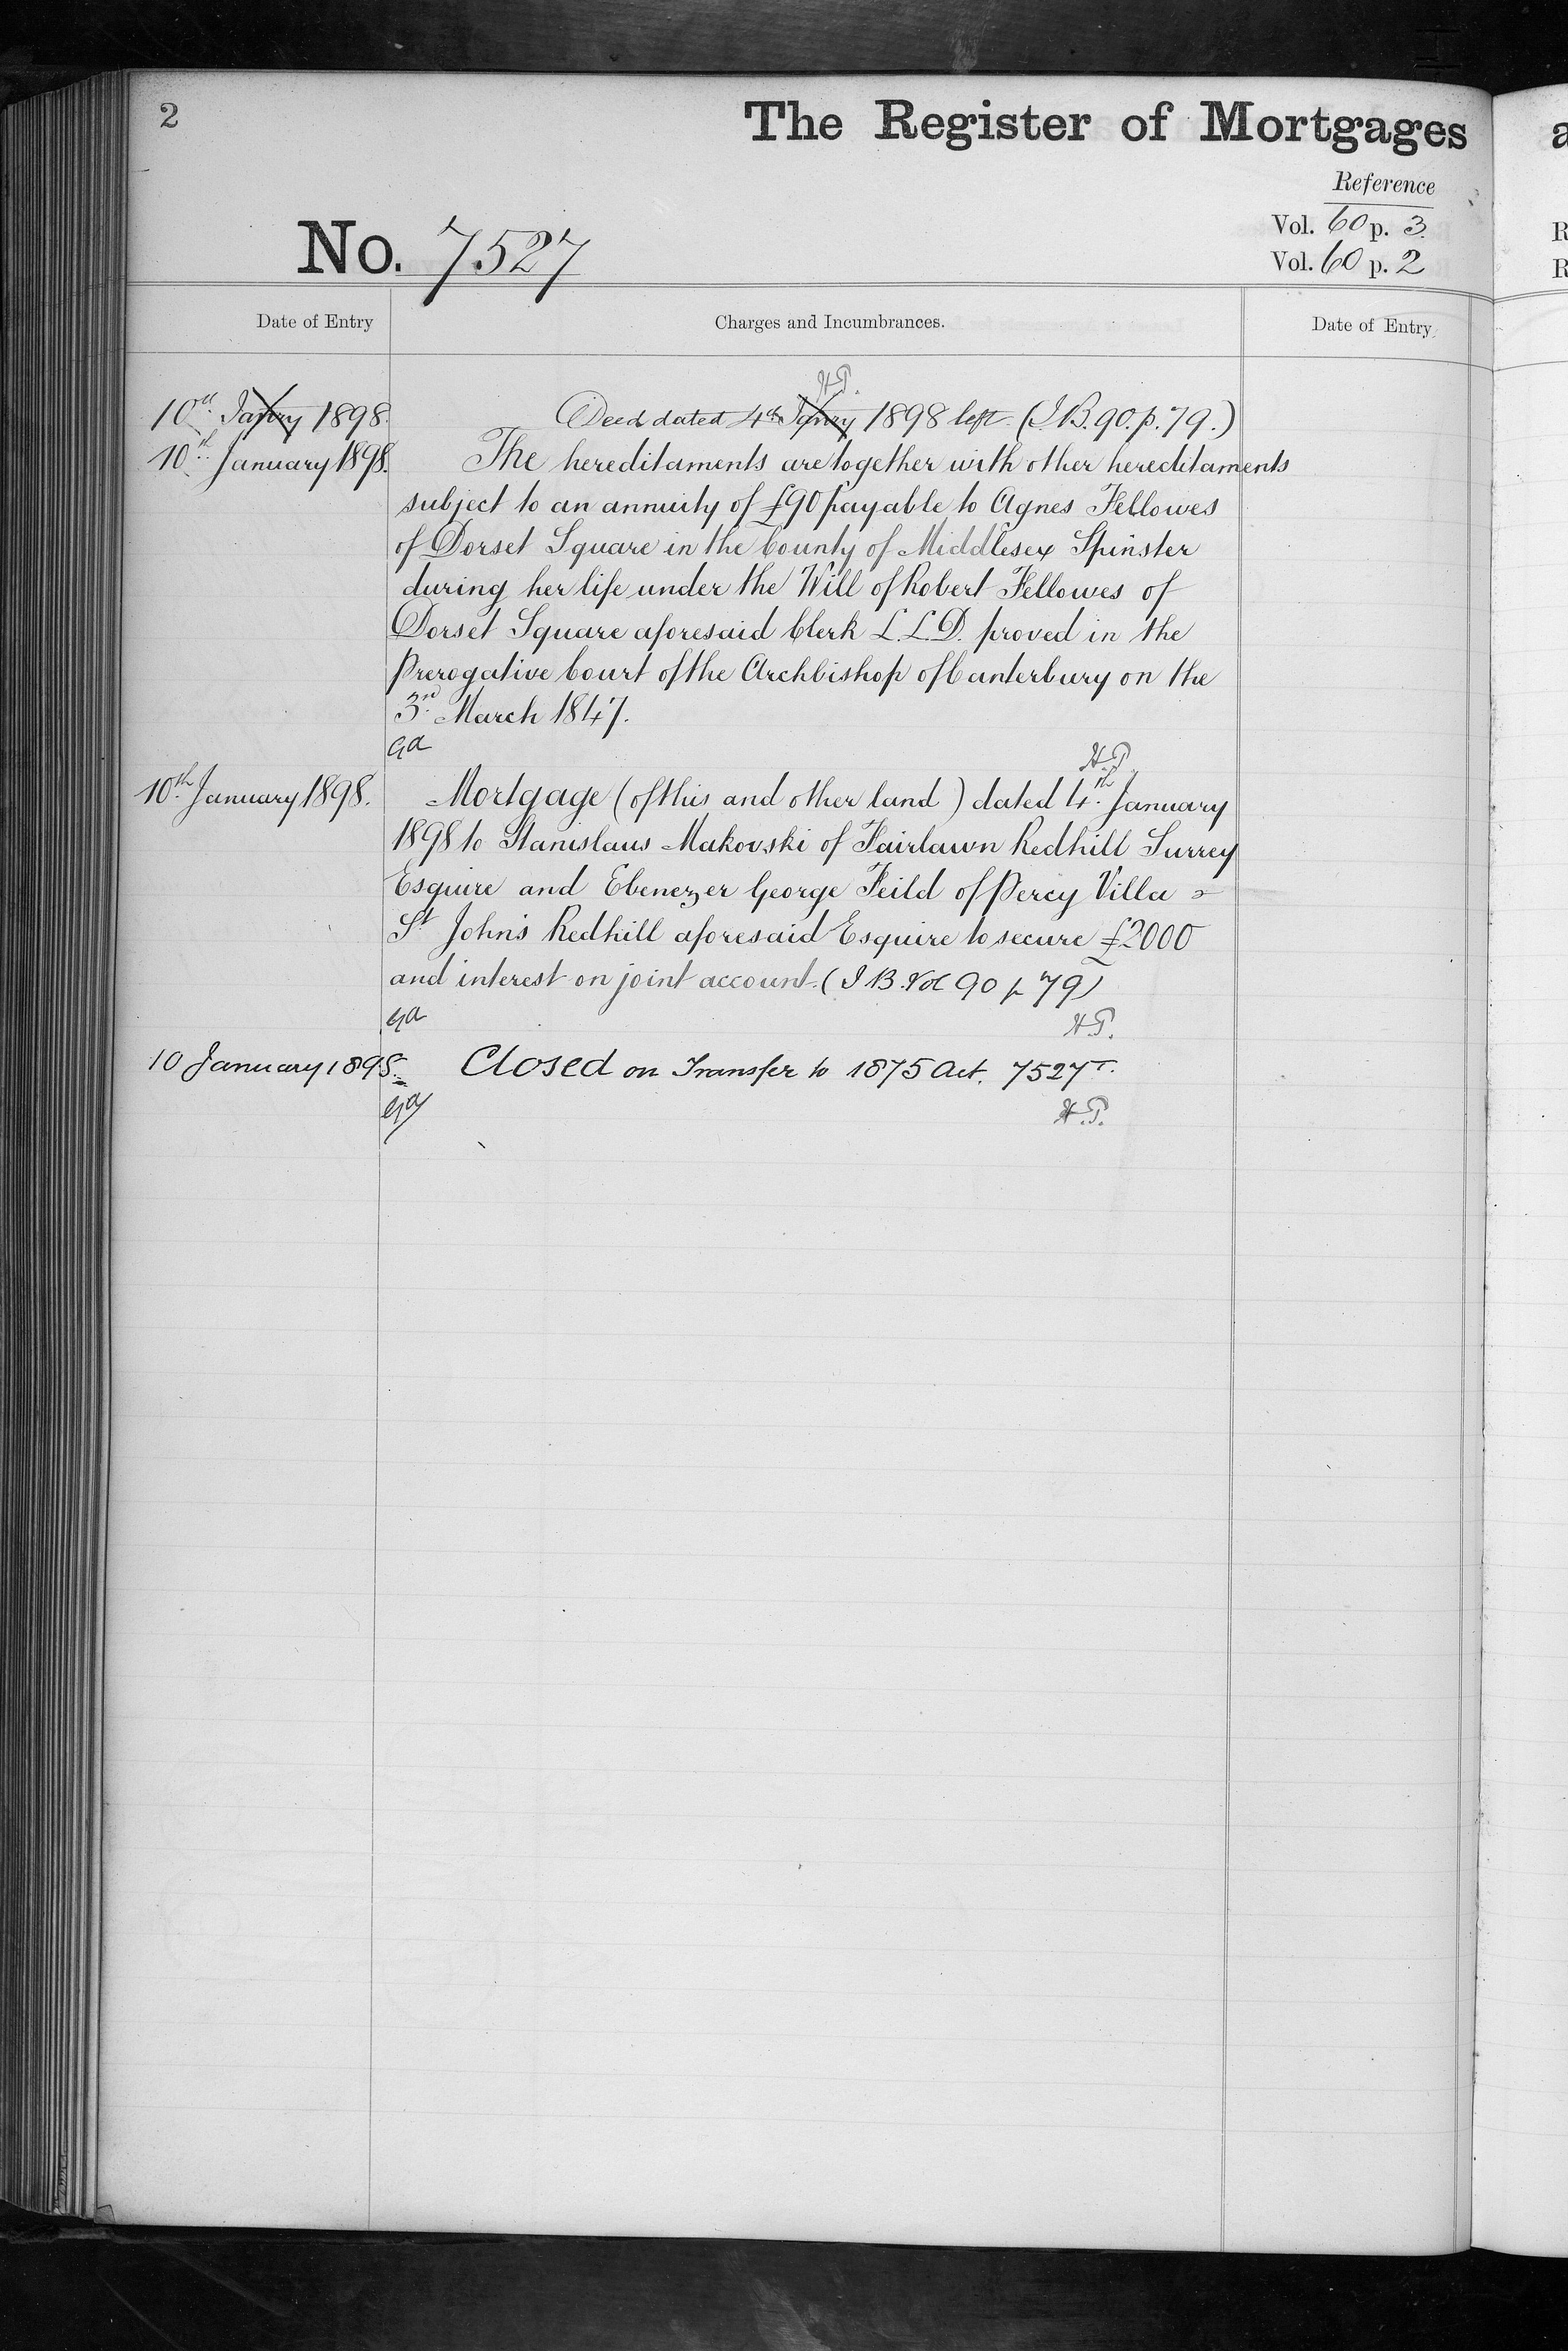 2
The Register of Mortgages
Reference
Vol. 60 p. 3
Vol. 60 p. 2
No. 7527
Date of Entry
Charges and Incumbrances.
Date of Entry
H.P.
10th Janry 1898. Deed dated 4th Janry 1898 left. (I.B. 90. p. 79.)
10th January 1898. The hereditaments are together with other hereditaments
subject to an annuity of £90 payable to Agnes Fellowes
of Dorset Square in the County of Middlesex Spinster
during her life under the Will of Robert Fellowes of
Dorset Square aforesaid Clerk L.L.D. proved in the
Prerogative Court of the Archbishop of Canterbury on the
3rd March 1847.
Ga
H.P.
10th January 1898. Mortgage (of this and other land) dated 4th January
1898 to Stanislaus Makovski of Fairlawn Redhill Surrey
Esquire and Ebenezer George Feild of Percy Villa
St John's Redhill aforesaid Esquire to secure £2000
and interest on joint account. (I B. Vol 90 p 79)
Ga H.P.
10 January 1898. Closed on Transfer to 1875 Act. 7527T.
Ga H.P.